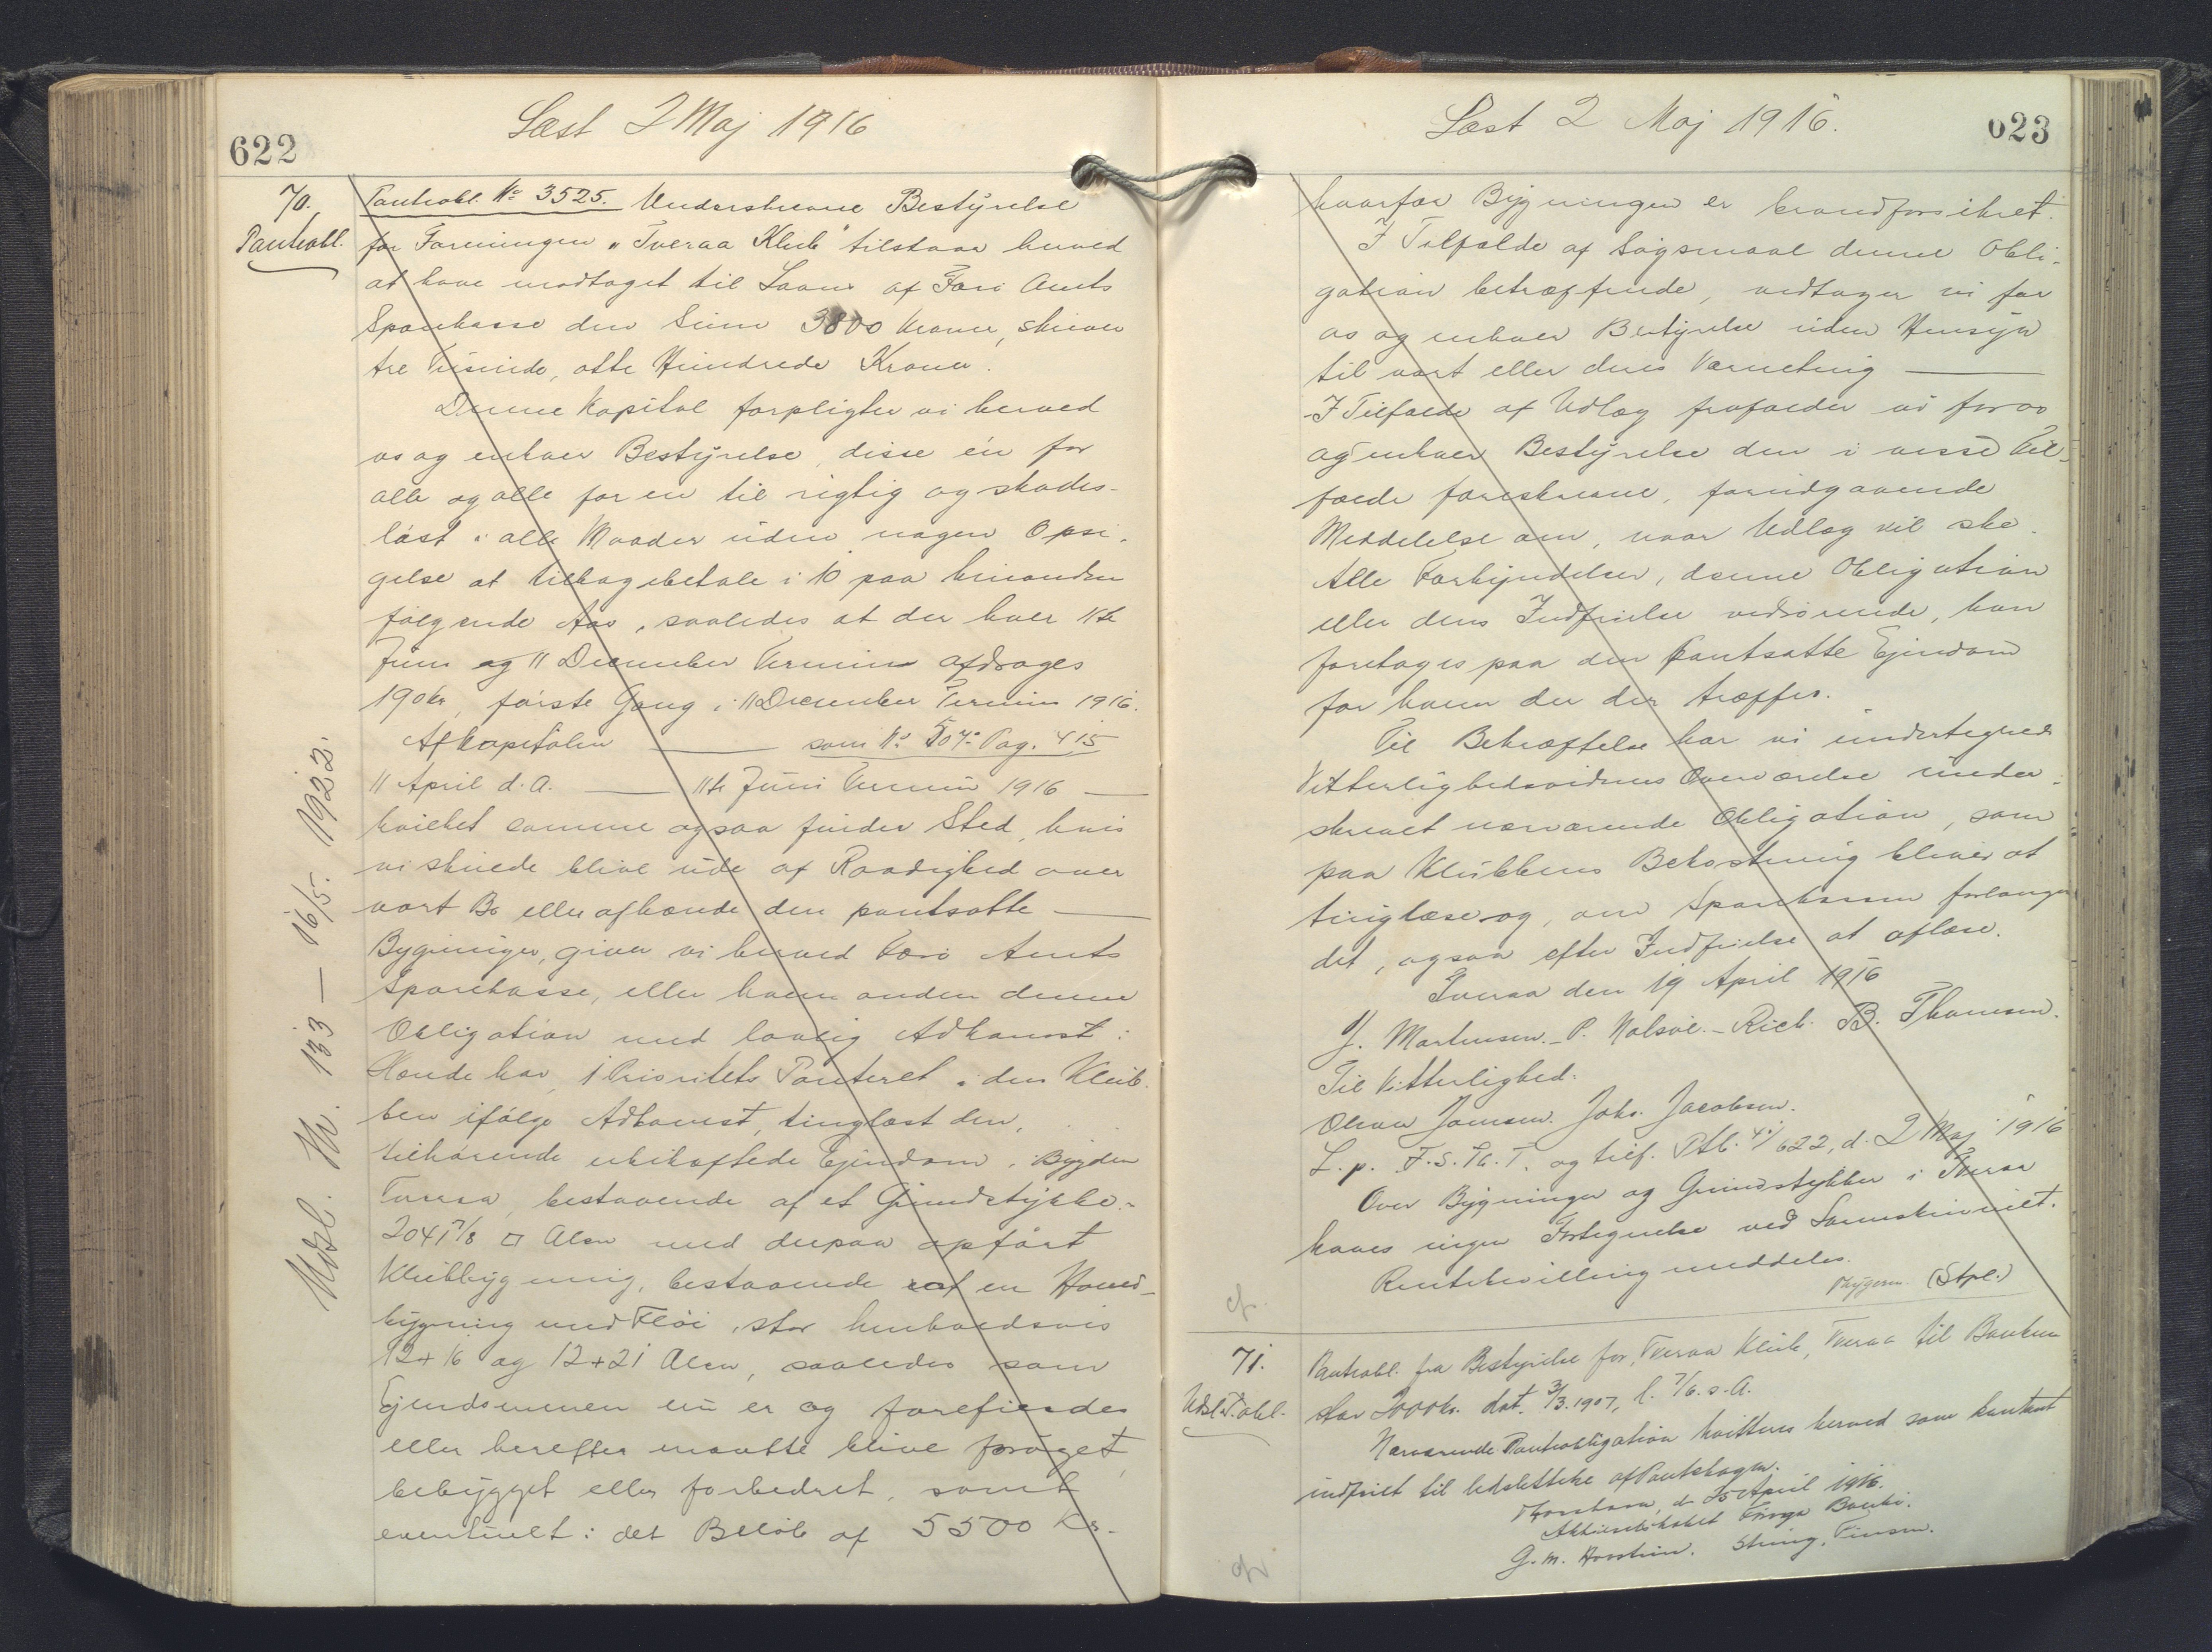 Læst 2 Maj 1916
622
70.
Pantobl.
Pantobl. No 3525. Underskrevne Bestyrelse
for Foreningen "Tveraa Klub" tilstaar herved
at have modtaget til Laans af Færø Amts
Sparekasse den Sum 3800 Kroner, skriver
tre Tusinde, otte Hundrede Kroner.
Denne Kapital forpligter vi herved
os og enhver Bestyrelse, disse én for
alle og alle for en til rigtig og skades-
løst i alle Maader uden nogen Opsi-
gelse at tilbagebetale i 10 paa hinanden
følgende Aar, saaledes at der hver 11te
Juni og 11 December Termin afdrages
190 kr, første Gang i 11 December Termin 1916.
Af Kapitalen ——— som No 504 Pag. 415
11 April d. A. ——— 11te Juni Termin 1916 ———
hvilket samme ogsaa finder Sted, hvis
vi skulde blive ude af Raadighed over
vort Bo eller afhænde den pantsatte ———
Bygninger, giver vi herved Færø Amts
Sparekasse, eller hvem anden denne
Obligation med lovlig Adkomst i
Hænde har, 1 Prioritets Panteret i den Klub-
ben ifølge Adkomst, tinglæst den,
tilhørende ubehæftede Ejendom i Bygden
Tveraa, bestaaende af et Grundstykke -
2041 7/8 □ Alen med derpaa opført
Klubbygning, bestaaende af en Hoved-
bygning med Fløi, stor henholdsvis
12+16 og 12+21 Alen, saaledes som
Ejendommen nu er og forefindes
eller herefter maatte blive forøget,
bebygget eller forbedret, samt
eventuelt i det Beløb af 5500 Kr.
Udsl. Th. 133 — 16/5. 1922.
Læst 2 Maj 1916.
623
hvorfor Bygningen er brandforsikret.
I Tilfælde af Søgsmaal denne Obli-
gation betræffende, vedtager vi for
os og enhver Bestyrelse uden Hensyn
til vort eller deres Værneting ———
I Tilfælde af Udlæg frafalder vi for os
og enhver Bestyrelse den i visse Til-
fælde foreskrevne, forudgaaende
Meddelelse om, naar Udlæg vil ske.
Alle Forkyndelser, denne Obligation
eller dens Indfrielse vedrørende, kan
foretages paa den pantsatte Ejendom
for hvem der der træffes.
Til Bekræftelse har vi i undertegnede
Vitterlighedsvidners Overværelse under-
skrevet nærværende Obligation, som
paa Klubbens Bekostning bliver at
tinglæse og, om Sparekassen forlanger
det, ogsaa efter Indfrielse at aflæse.
Tveraa den 19 April 1916
J. Mortensen. - P. Nolsøe. - Rich. B. Thomsen.
Til Vitterlighed:
Joensen. Johs. Jacobsen.
L. p. F. S. Th. T. og tilf. Ptb. 622, d. 2 Maj 1916
Over Bygninger og Grundstykker i Tveraa
haves ingen Fortegnelse ved Sorenskriveriet.
Rentebevilling meddeles.
(Stpl.)
cf.
71.
Udsl. P.obl.
Pantobl. fra Bestyrelse for, Tveraa Klub, Tveraa til Banken
stor 2000 kr. dat. 3/3. 1907, l. 7/6. s. A.
Nærværende Pantobligation kvitteres herved som kontant
indfriet til Udslettelse af Pantebogen.
Thorshavn, d. 25 April 1916.
Aktieselskabet Føroya Banki.
G. M.
cf.